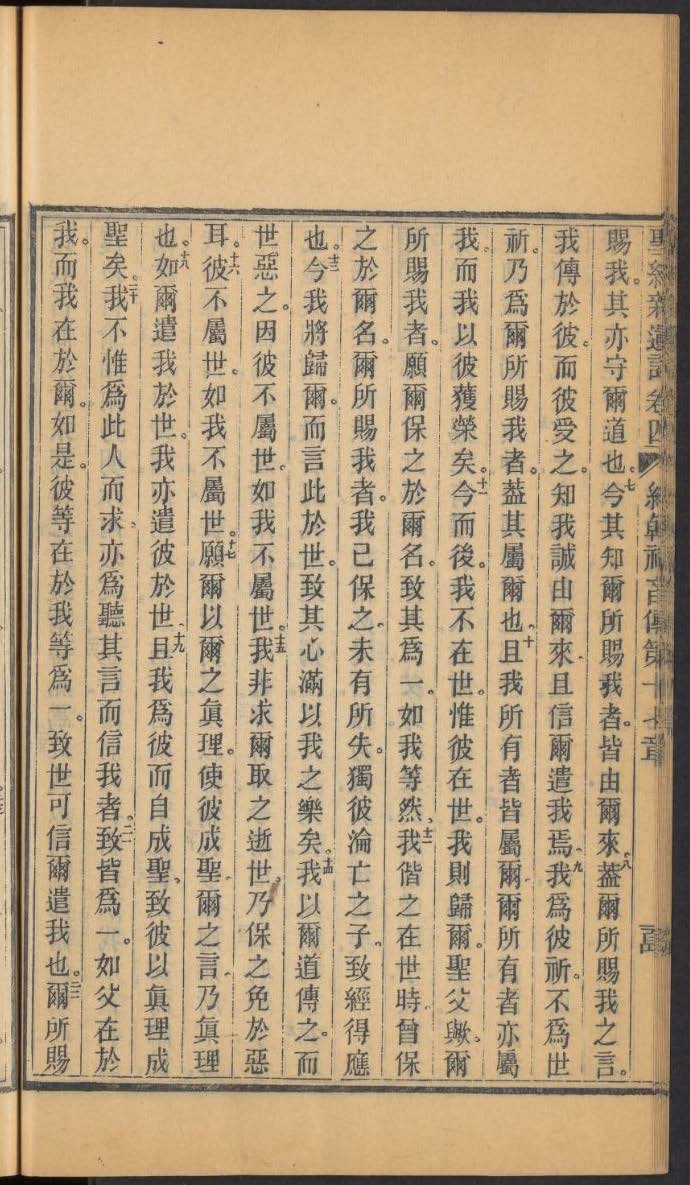 聖經新遺詔卷四 約翰福音傳第十七章
賜我。其亦守爾道也。七今其知爾所賜我者。皆由爾來。八蓋爾所賜我之言。
我傳於彼。而彼受之。知我誠由爾來。且信爾遣我焉。九我爲彼祈。不爲世
祈。乃爲爾所賜我者。葢其屬爾也。十且我所有者皆屬爾。爾所有者亦屬
我。而我以彼獲榮矣。十一今而後。我不在世。惟彼在世。我則歸爾。聖父歟。爾
所賜我者。願爾保之於爾名。致其爲一。如我等然。十二我偕之在世時。曾保
之於爾名。爾所賜我者。我已保之。未有所失。獨彼淪亡之子。致經得應
也。十三今我將歸爾。而言此於世。致其心滿以我之樂矣。十四我以爾道傳之。而
世惡之。因彼不屬世。如我不屬世。十五我非求爾取之逝世。乃保之免於惡
耳。十六彼不屬世。如我不屬世。十七願爾以爾之眞理。使彼成聖。爾之言。乃眞理
也。十八如爾遣我於世。我亦遣彼於世。十九且我爲彼而自成聖。致彼以眞理成
聖矣。二十我不惟爲此人而求。亦爲聽其言而信我者。二一致皆爲一。如父在於
我。而我在於爾。如是。彼等在於我等爲一。致世可信爾遣我也。二二爾所賜